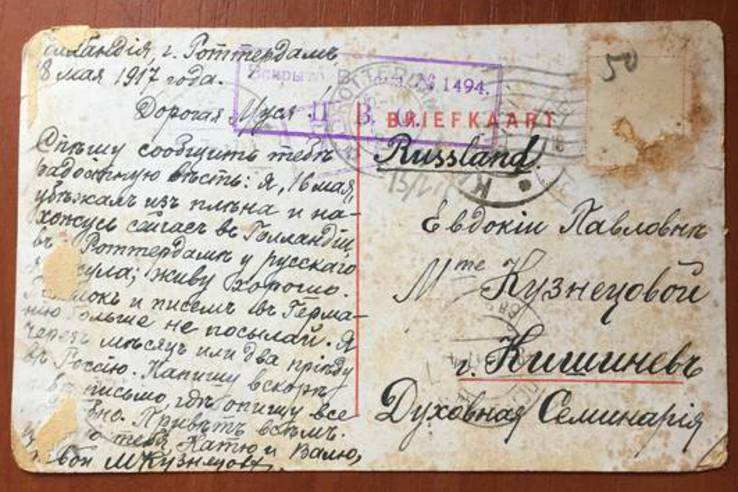 Голландія, г. Роттердамъ
8 мая 1917 года.
Дорогая Муся!
Спѣшу сообщить тебѣ
радостную вѣсть: я, 16 мая
убѣжалъ изъ плѣна и на-
хожусь сейчасъ въ Голландіи
въ Роттердамѣ у русскаго
консула; живу хорошо.
и писемъ въ Герма-
нію больше не посылай. Я
черезъ мѣсяцъ или два пріѣду
въ Россію. Напишу вскорѣ
письмо, гдѣ опишу все
Привѣтъ всѣмъ.
тебя, Катю и Валю,
твой МКузнецовъ
Вскрыто В. 1494.
П. В. Ц.
BRIEFKAART
Russland
50
Евдокіи Павловнѣ
Mme Кузнецовой
г. Кишиневъ
Духовная Семинарія